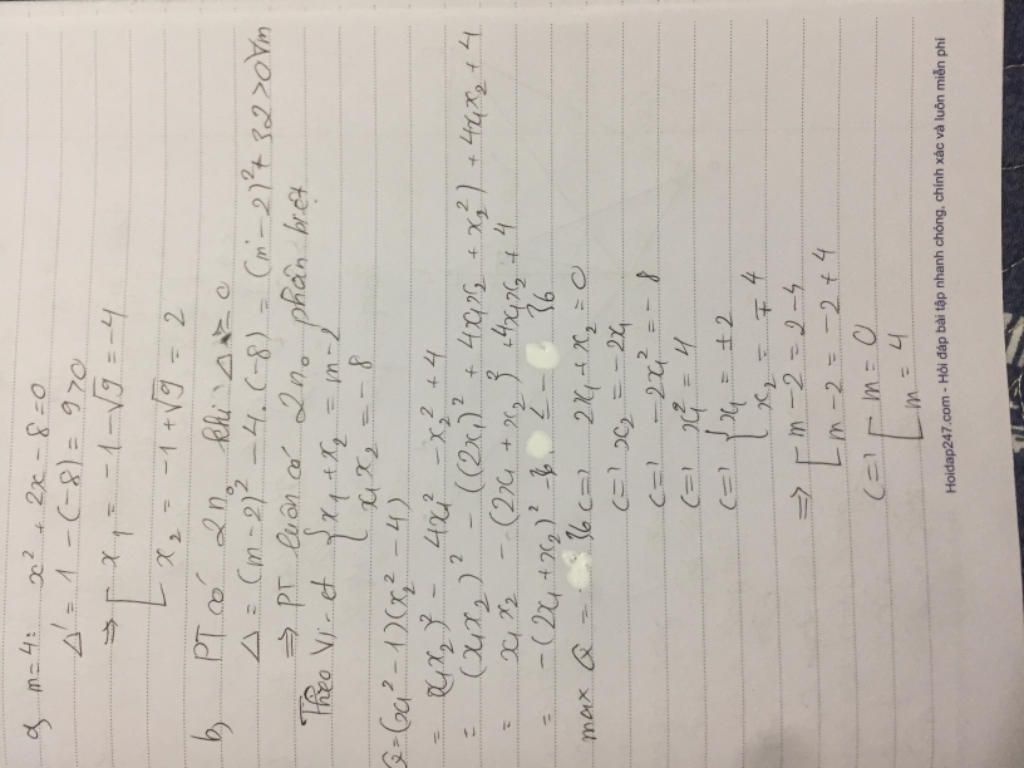 a, m=4: x² + 2x - 8 = 0
Δ' = 1 - (-8) = 9 > 0
⇒ [ x₁ = -1 - √9 = -4
x₂ = -1 + √9 = 2
b, PT có 2 n₀ khi Δ ≥ 0
Δ = (m-2)² - 4.(-8) = (m-2)² + 32 > 0 ∀m
⇒ PT luôn có 2 n₀ phân biệt
Theo Vi-et { x₁ + x₂ = m-2
x₁x₂ = -8
Q = (x₁² - 1)(x₂² - 4)
= (x₁x₂)² - 4x₁² - x₂² + 4
= (x₁x₂)² - ((2x₁)² + 4x₁x₂ + x₂²) + 4x₁x₂ + 4
= x₁x₂ - (2x₁ + x₂)² + 4x₁x₂ + 4
= -(2x₁ + x₂)² ≤ - 36
max Q = 36 <=> 2x₁ + x₂ = 0
<=> x₂ = -2x₁
<=> -2x₁² = -8
<=> x₁² = 4
<=> { x₁ = ±2
x₂ = ∓4
⇒ [ m-2 = 2-4
m-2 = -2+4
<=> [ m = 0
m = 4
Hoidap247.com - Hỏi đáp bài tập nhanh chóng, chính xác và luôn miễn phí